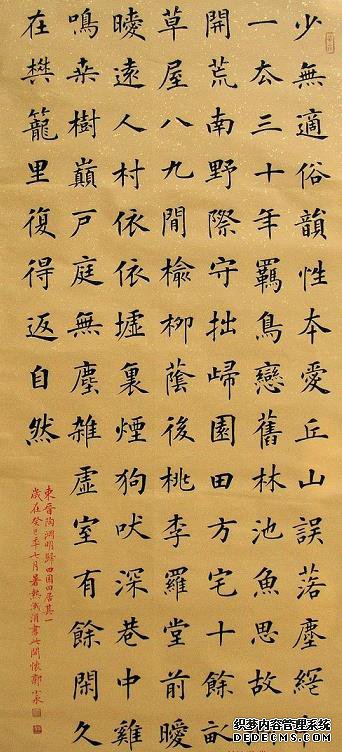 少無適俗韻性本愛丘山誤落塵網
一去三十年羈鳥戀舊林池魚思故
開荒南野際守拙歸園田方宅十餘畝
草屋八九間榆柳蔭後桃李羅堂前曖
曖遠人村依依墟裏煙狗吠深巷中雞
鳴桒樹巔戶庭無塵雜虛室有餘閑久
在樊籠里復得返自然
東晉陶淵明歸田園田居其一
歲在癸巳年七月暑熱消書